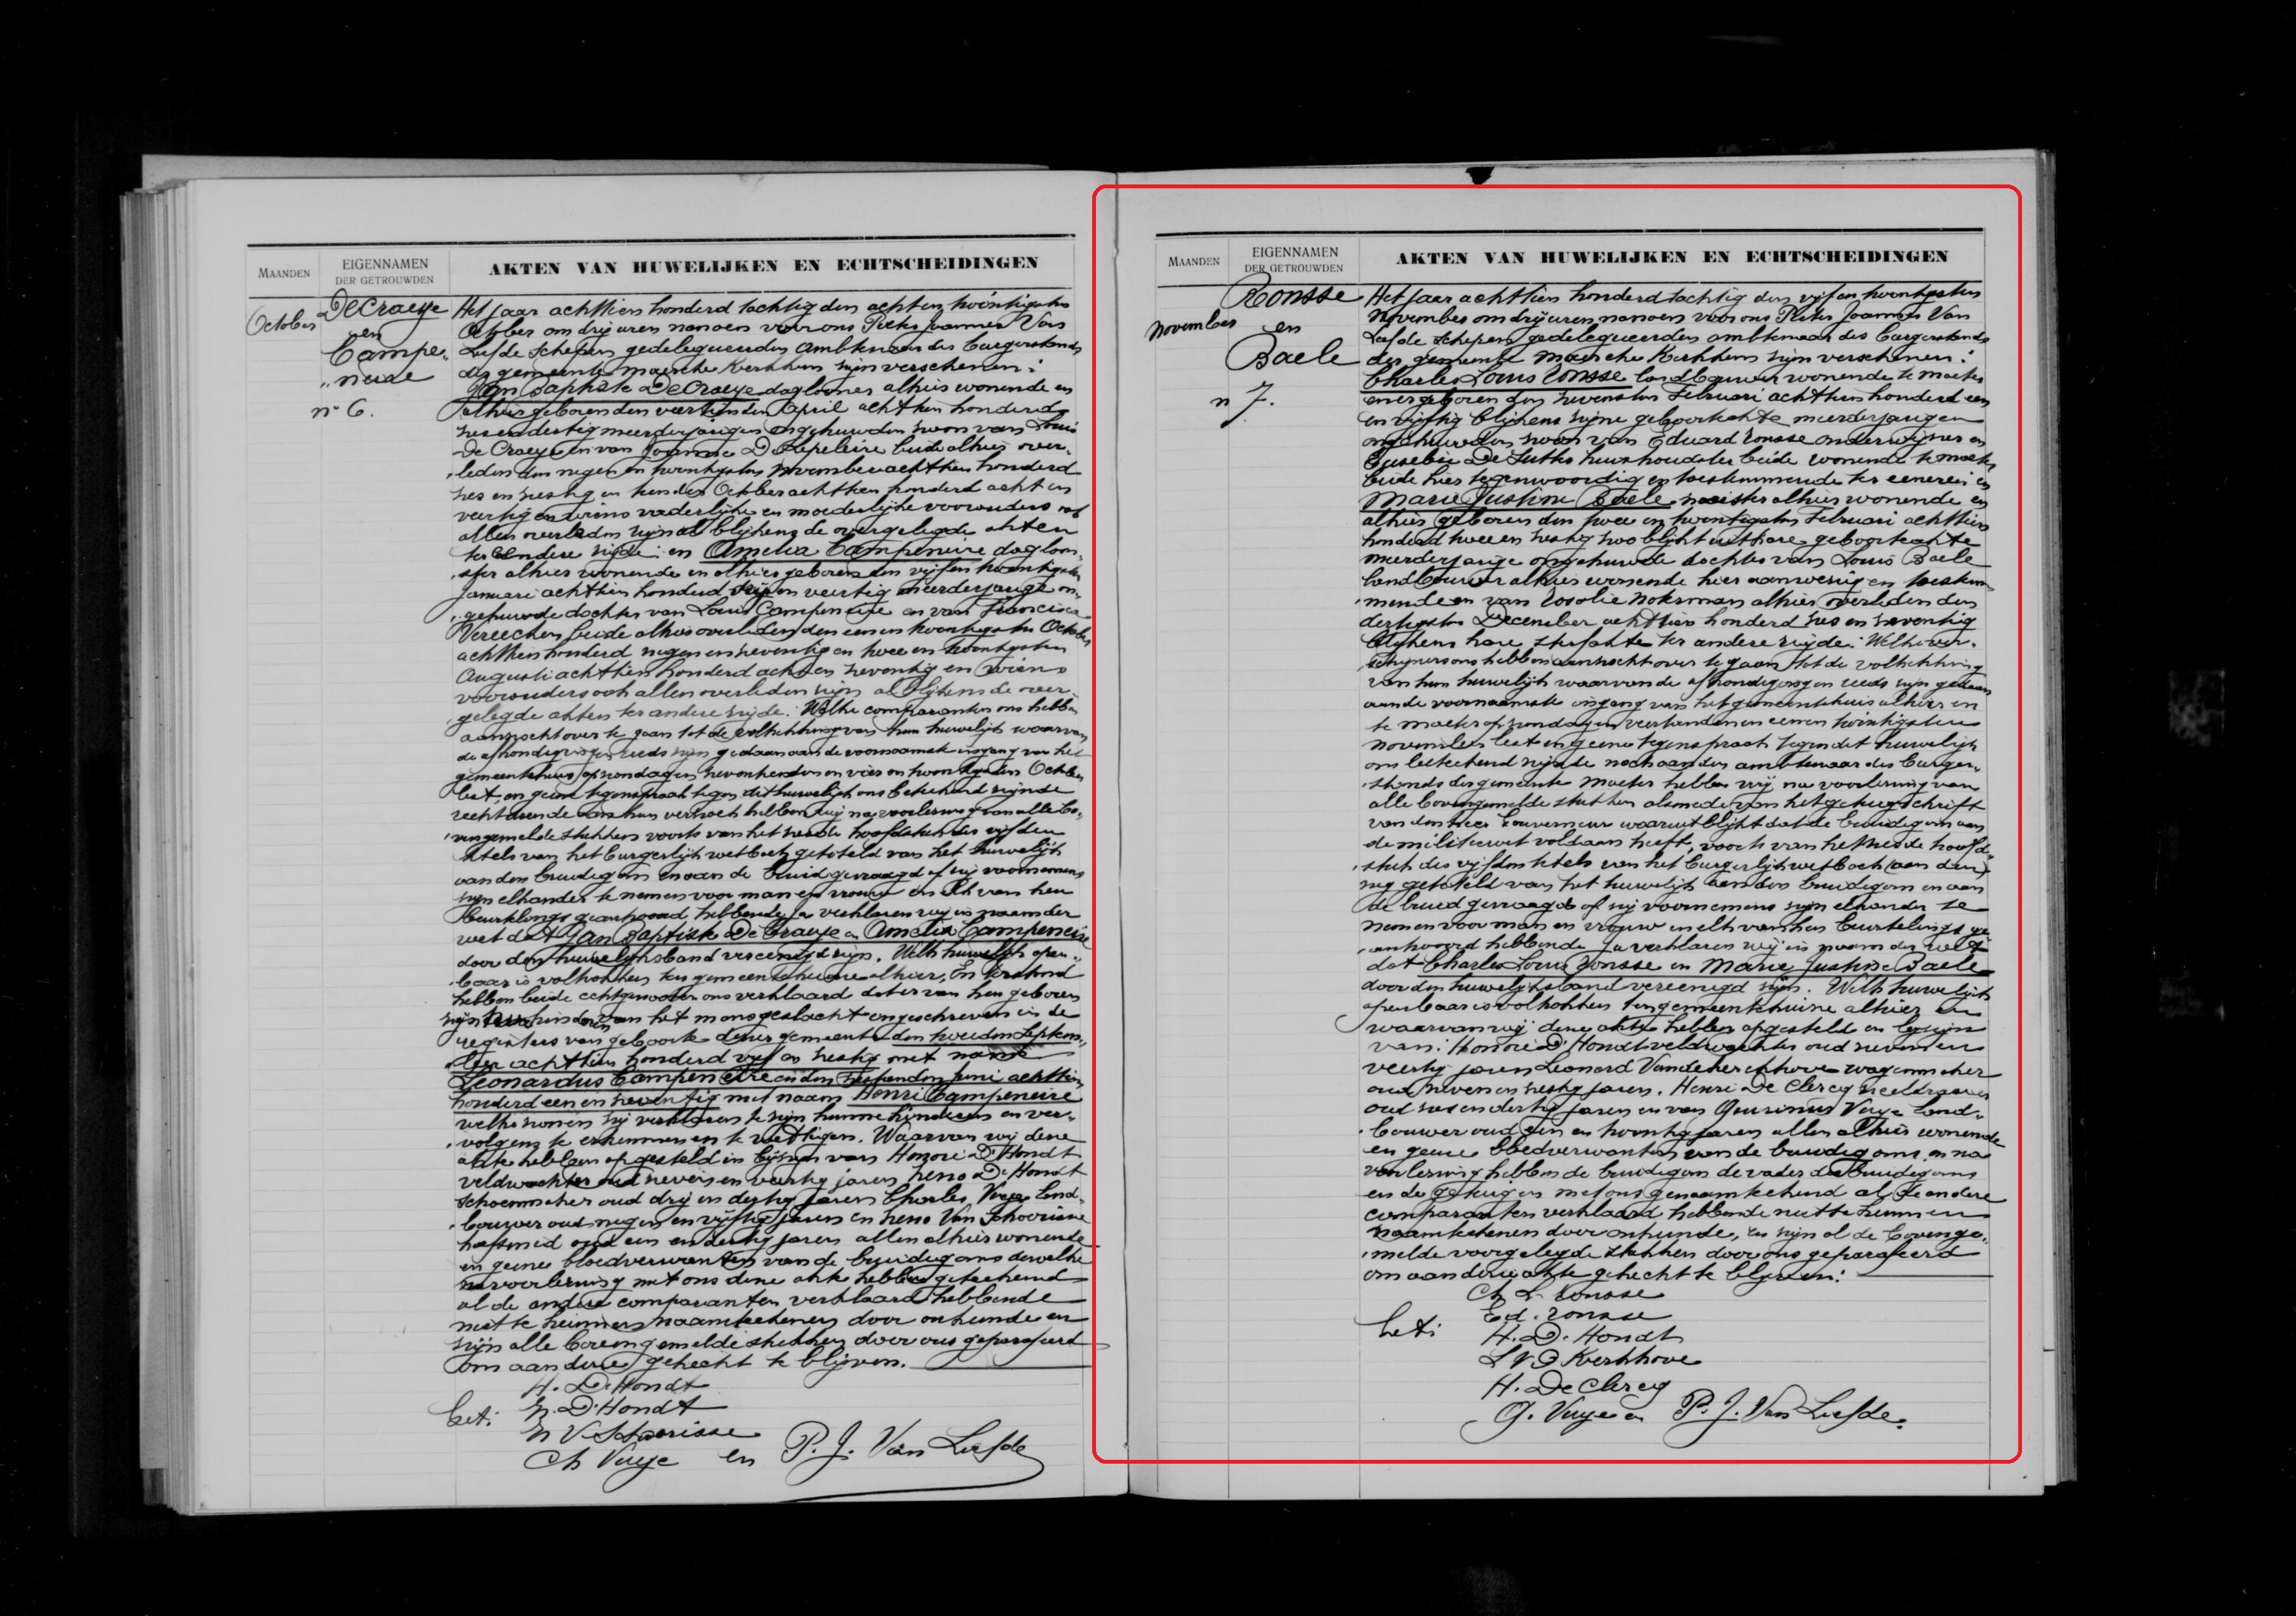 MAANDEN
EIGENNAMEN
DER GETROUWDEN
AKTEN VAN HUWELIJKEN EN ECHTSCHEIDINGEN
October
DeCraeye
en
Campe-
neire
n° 6.
Het jaar achttien honderd tachtig den acht en twintigsten
October om drij uren namens voor ons Pieter Joannes Van
Liefde Schepen gedelegueerden Ambtenaar des Burgerstands
der gemeente Maercke Kerkhem zijn verschenen:
Jan Baptiste DeCraeye daglooner alhier wonende en
alhier geboren den veertienden April achttien honderd
zes en dertig meerderjarigen ongehuwden zoon van Louis
De Craeye en van Joanna D'Hepeleire beide alhier over-
leden den negen en twintigsten November achttien honderd
zes en zestig en October achttien honderd acht en
veertig en wiens vaderlijke en moederlijke voorouders ook
allen overleden zijn al blijkens de overgelegde akten
ter eendere zijde: en Amelia Campeneire dagloon-
ster alhier wonende en alhier geboren den vijf en twintigsten
Januari achttien honderd drij en veertig meerderjarige on-
gehuwde dochter van Louis Campeneire en van Francisca
Vereecken beide alhier overleden den een en twintigsten October
achttien honderd negen en zeventig en twee en twintigsten
Augusti achttien honderd acht en zeventig en wiens
voorouders ook allen overleden zijn al blijkens de over-
gelegde akten ter andere zijde. Welke comparanten ons hebben
aanzocht over te gaan tot de voltrekking van hun huwelijk waarvan
de afkondigingen reeds zijn gedaan aan de voornaamste ingang van het
gemeentehuis op zondagen zeventienden en vier en twintigsten October
lest, en geene tegenspraak tegen dit huwelijk ons beteekend zijnde
recht doende aan hun verzoek hebben wij na voorlezing van alle bo-
vengemelde stukken voorts van het zesde hoofdstuk des vijfden
titels van het burgerlijk wetboek getiteld van het huwelijk
aan den bruidegom en aan de bruid gevraagd of zij voornemens
zijn elkander te nemen voor man en vrouw en elk van hen
beurtelings geantwoord hebbende ja verklaren wij in naam der
wet dat Jan Baptiste De Craeye en Amelia Campeneire
door den huwelijksband vereenigd zijn. Welk huwelijk open-
baar is voltrokken ten gemeentehuize alhier. En terstond
hebben beide echtgenooten ons verklaard dat er van hen geboren
zijn twee kinderen van het mansgeslacht ingeschreven in de
registers van geboorte dezer gemeente den tweeden Septem-
ber achttien honderd vijf en zestig met name
Leonardus Campeneire en den Juni achttien
honderd een en zeventig met naam Henri Campeneire
welke zonen zij verklaren te zijn hunne kinderen en ver-
volgens te erkennen en te wettigen. Waarvan wij deze
akte hebben opgesteld in bijzijn van Honoré D'Hondt
veldwachter oud zeven en veertig jaren, D'Hondt
schoenmaker oud drij en dertig jaren Charles Vuye land-
bouwer oud negen en vijftig jaren en Van Schoorisse
hoefsmid oud een en dertig jaren allen alhier wonende
en geene bloedverwanten van de bruidegoms dewelke
na voorlezing met ons deze akte hebben geteekend
al de andere comparanten verklaard hebbende
niet te kunnen naamteekenen door onkunde en
zijn alle bovengemelde stukken door ons geparafeerd
om aan deze gehecht te blijven.
H. D'Hondt
Get: D'Hondt
V. Schoorisse
Ch Vuye en P. J. Van Liefde
MAANDEN
EIGENNAMEN
DER GETROUWDEN
AKTEN VAN HUWELIJKEN EN ECHTSCHEIDINGEN
November
Ronsse
en
Baele
n 7.
Het jaar achttien honderd tachtig den vijf en twintigsten
November om drij uren namens voor ons Pieter Joannes Van
Liefde Schepen gedelegueerden ambtenaar des Burgerstands
der gemeente Maercke Kerkhem zijn verschenen:
Charles Louis Ronsse landbouwer wonende te Maeter
en er geboren den zevensten Februari achttien honderd een
en vijftig blijkens zijne geboorteakte meerderjarigen
ongehuwden zoon van Eduard Ronsse onderwijzer en
Eusebie De huishoudster beide wonende te Maeter
beide hier tegenwoordig en toestemmende ter eenerzij en
Marie Justine Baele naaister alhier wonende en
alhier geboren den twee en twintigsten Februari achttien
honderd twee en zestig zoo blijkt uit hare geboorteakte
meerderjarige ongehuwde dochter van Louis Baele
landbouwer alhier wonende hier aanwezig en toestem-
mende en van Rosalie Nokerman alhier overleden den
dertigsten December achttien honderd zes en zeventig
blijkens hare sterfakte ter andere zijde: Welke ver-
schijners ons hebben aanzocht over te gaan tot de voltrekking
van hun huwelijk waarvan de afkondigingen reeds zijn gedaan
aan de voornaamste ingang van het gemeentehuis alhier en
te Maeter op zondagen veertienden en eenen twintigsten
November lest en geene tegenspraak tegen dit huwelijk
ons beteekend zijnde noch aan den ambtenaar des Burger-
stands der gemeente Maeter hebben wij na voorlezing van
alle bovengemelde stukken alsmede van het getuigschrift
van den heer Gouverneur waaruit blijkt dat de bruidegom aan
de militiewet voldaan heeft, voorts van het zesde hoofd-
stuk des vijfden titels van het burgerlijk wetboek (aan den)
getiteld van het huwelijk aan den bruidegom en aan
de bruid gevraagd of zij voornemens zijn elkander te
nemen voor man en vrouw en elk van hen beurtelings ge-
antwoord hebbende ja verklaren wij in naam der wet
dat Charles Louis Ronsse en Marie Justine Baele
door den huwelijksband vereenigd zijn. Welk huwelijk
openbaar is voltrokken ten gemeentehuize alhier en
waarvan wij deze akte hebben opgesteld in bijzijn
van: Honoré D'Hondt veldwachter oud zeven en
veertig jaren Leonard Vandekerckhove wagenmaker
oud zeven en zestig jaren, Henri De Clercq
oud zes en dertig jaren en van Quirinus Vuye land-
bouwer oud een en twintig jaren allen alhier wonende
en geene bloedverwanten van de bruidegoms en na
voorlezing hebben de bruidegom de vader des bruidegoms
en de getuigen met ons genaamteekend al de andere
comparanten verklaard hebbende niet te kunnen
naamteekenen door onkunde, en zijn al de bovenge-
melde voorgelegde stukken door ons geparafeerd
om aan deze akte gehecht te blijven:
Ch L. Ronsse
Ed. Ronsse
Get: H. D'Hondt
L V D Kerkhove
H. De Clercq
Q. Vuye en P. J. Van Liefde.